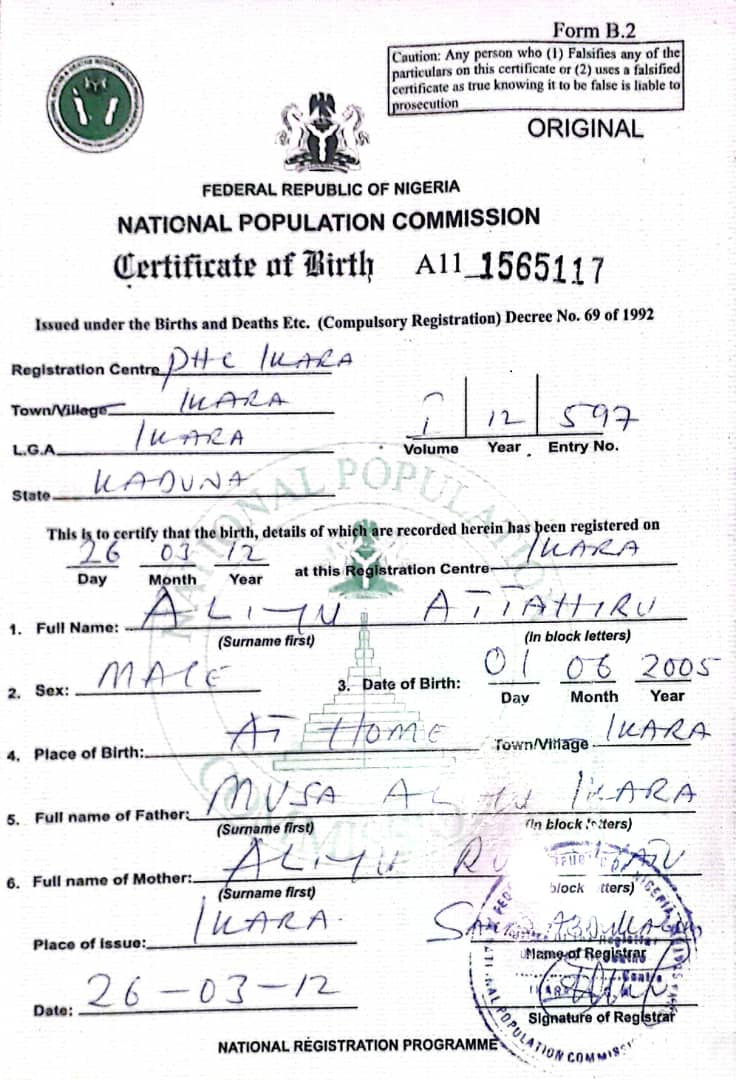 Form B.2
Caution: Any person who (1) Falsifies any of the
particulars on this certificate or (2) uses a falsified
certificate as true knowing it to be false is liable to
prosecution
ORIGINAL
FEDERAL REPUBLIC OF NIGERIA
NATIONAL POPULATION COMMISSION
Certificate of Birth A11 1565117
Issued under the Births and Deaths Etc. (Compulsory Registration) Decree No. 69 of 1992
Registration Centre PHC IKARA
Town/Village IKARA
L.G.A. IKARA
State KADUNA
I 12 597
Volume Year Entry No.
This is to certify that the birth, details of which are recorded herein has been registered on
26 03 12 at this Registration Centre IKARA
Day Month Year
1. Full Name: ALIYU ATTAHIRU
(Surname first) (In block letters)
2. Sex: MALE 3. Date of Birth: 01 06 2005
Day Month Year
4. Place of Birth: AT HOME Town/Village IKARA
5. Full name of Father: MUSA IKARA
(Surname first) (In block letters)
6. Full name of Mother: ALIYU
(Surname first) block
Place of Issue: IKARA
Name of Registrar
Date: 26-03-12
Signature of Registrar
NATIONAL REGISTRATION PROGRAMME
NATIONAL POPULATION COMMISSION